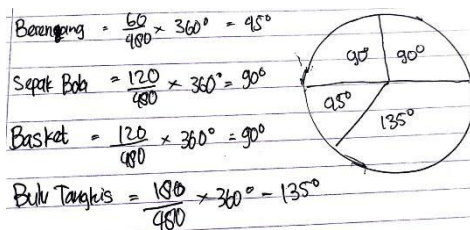 Berengang = 60/480 × 360° = 45°
Sepak Bola = 120/480 × 360° = 90°
Basket = 120/480 × 360° = 90°
Bulu Tangkis = 180/480 × 360° = 135°
90° 90°
45°
135°